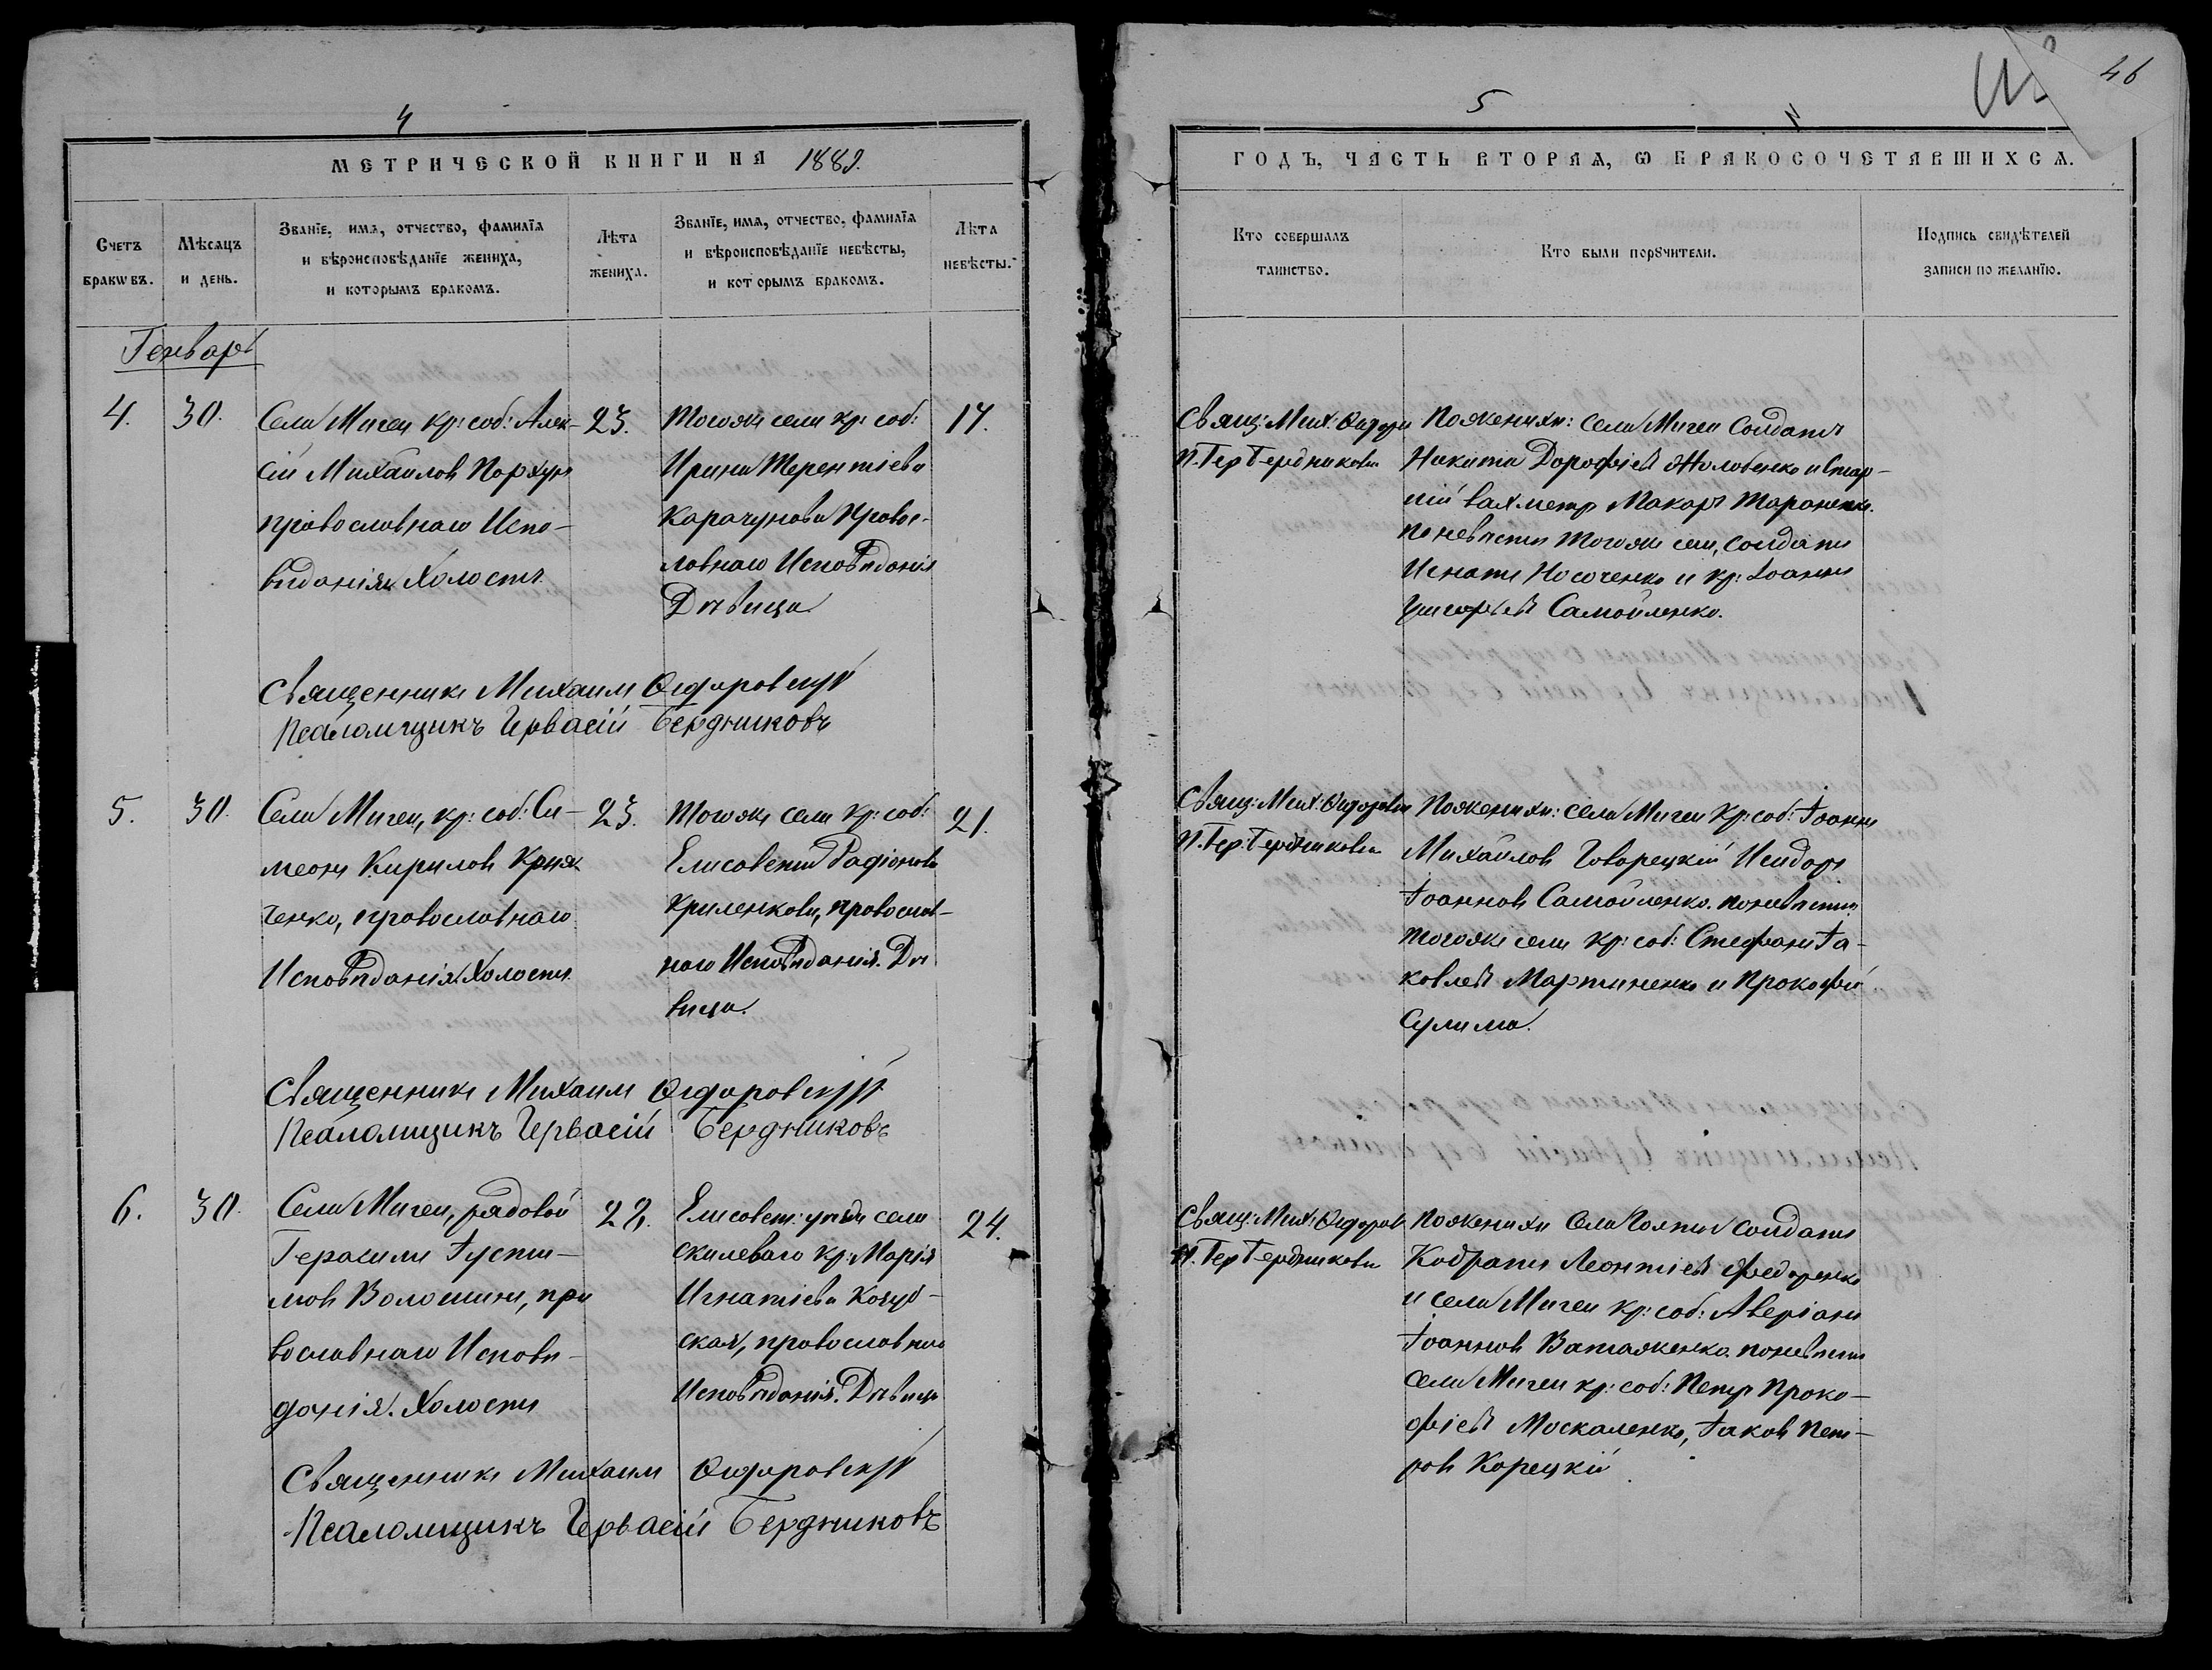 4
МЕТРИЧЕСКОЙ КНИГИ НА 1882.
Счетъ браковъ.
Мѣсяцъ и день.
Званїе, имѧ, отчество, фамилїѧ
и вѣроисповѣданїе жениха,
и которымъ бракомъ.
Лѣта
жениха.
Званїе, имѧ, отчество, фамилїѧ
и вѣроисповѣданїе невѣсты,
и которымъ бракомъ.
Лѣта
невѣсты.
Генварь
4.
30.
Села Мигеи кр: соб: Алек-
сій Михайлов
православнаго Испо-
виданія. Холостъ
23.
Тогожъ села кр: соб:
Ирина Терентіева
Карачунова Правос-
лавнаго Исповѣданія
Дѣвица
17.
Священникъ Михаилъ Ѳедоровскій
Псаломщикъ Гервасій Бердниковъ
5.
30.
Села Мигеи, кр: соб: Си-
меонъ Кирилов
ченко, православнаго
Исповѣданія. Холостъ
23.
Тогожъ села кр: соб:
Елисавета Радіонова
Криленкова, православ-
наго Исповѣданія. Дѣ
вица.
21.
Священникъ Михаилъ Ѳедоровскій
Псаломщикъ Гервасій Бердниковъ
6.
30.
Села Мигеи, рядовой
Герасимъ Іусти-
мов Волошинъ, пра
вославнаго Исповѣ-
данія. Холостъ
28.
Елисавет: уѣзда села
скилеваго кр: Марія
Игнатіева
ская, православнаго
Исповѣданія. Дѣвица
24.
Священникъ Михаилъ Ѳедоровскій
Псаломщикъ Гервасій Бердниковъ
5
46
ГОДЪ, ЧАСТЬ ВТОРАѦ, Ѡ БРАКОСОЧЕТАВШИХСѦ.
Кто совершалъ
таинство.
Кто были порꙋчители.
Подпись свидѣтелей
записи по желанїю.
Свящ: Мих: Ѳедоров
П. Гер Бердниковъ
По женихѣ: села Мигеи Солдатъ
Никита Дорофіев Жолобенко и Стар-
шій вахметр Макаръ Тараненко.
по невѣстѣ Тогожъ села, солдатъ
Игнатъ Носоченко и кр: Іоаннъ
Григорьев Самойленко.
Свящ: Мих: Ѳедоровск
П. Гер: Бердниковъ
По женихѣ: села Мигеи кр: соб: Іоаннъ
Михайлов Говорецкій Исидоръ
Іоаннов Самойленко. по невѣстѣ
тогожъ села кр: соб: Стефанъ Іа-
ковлев Мартиненко и Прокофій
Сулима.
Свящ: Мих: Ѳедоров
П. Гер Бердниковъ
По женихѣ Села Солдатъ
Кодратъ Леонтіев Федоренко
и села Мигеи кр: соб: Аверіанъ
Іоаннов Ватаженко. по невѣстѣ
села Мигеи кр: соб: Петр Проко-
фіев Москаленко, Іаков Пет-
ров Корецкій